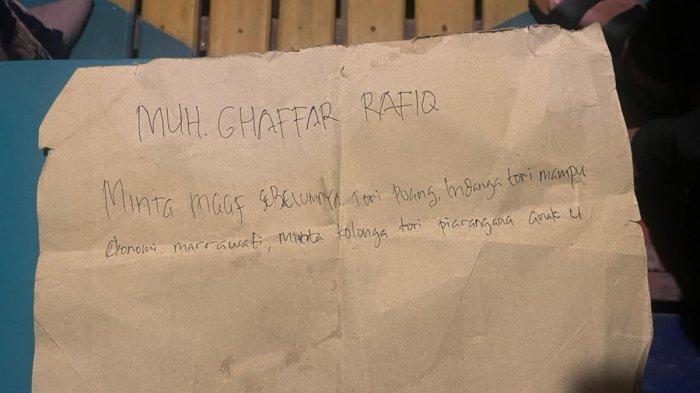 MUH. GHAFFAR RAFIQ
Minta maaf sebelumnya tori puang, Indanga tori mampu
ekonomi marrawati, minta tolonga tori piarangana anak u